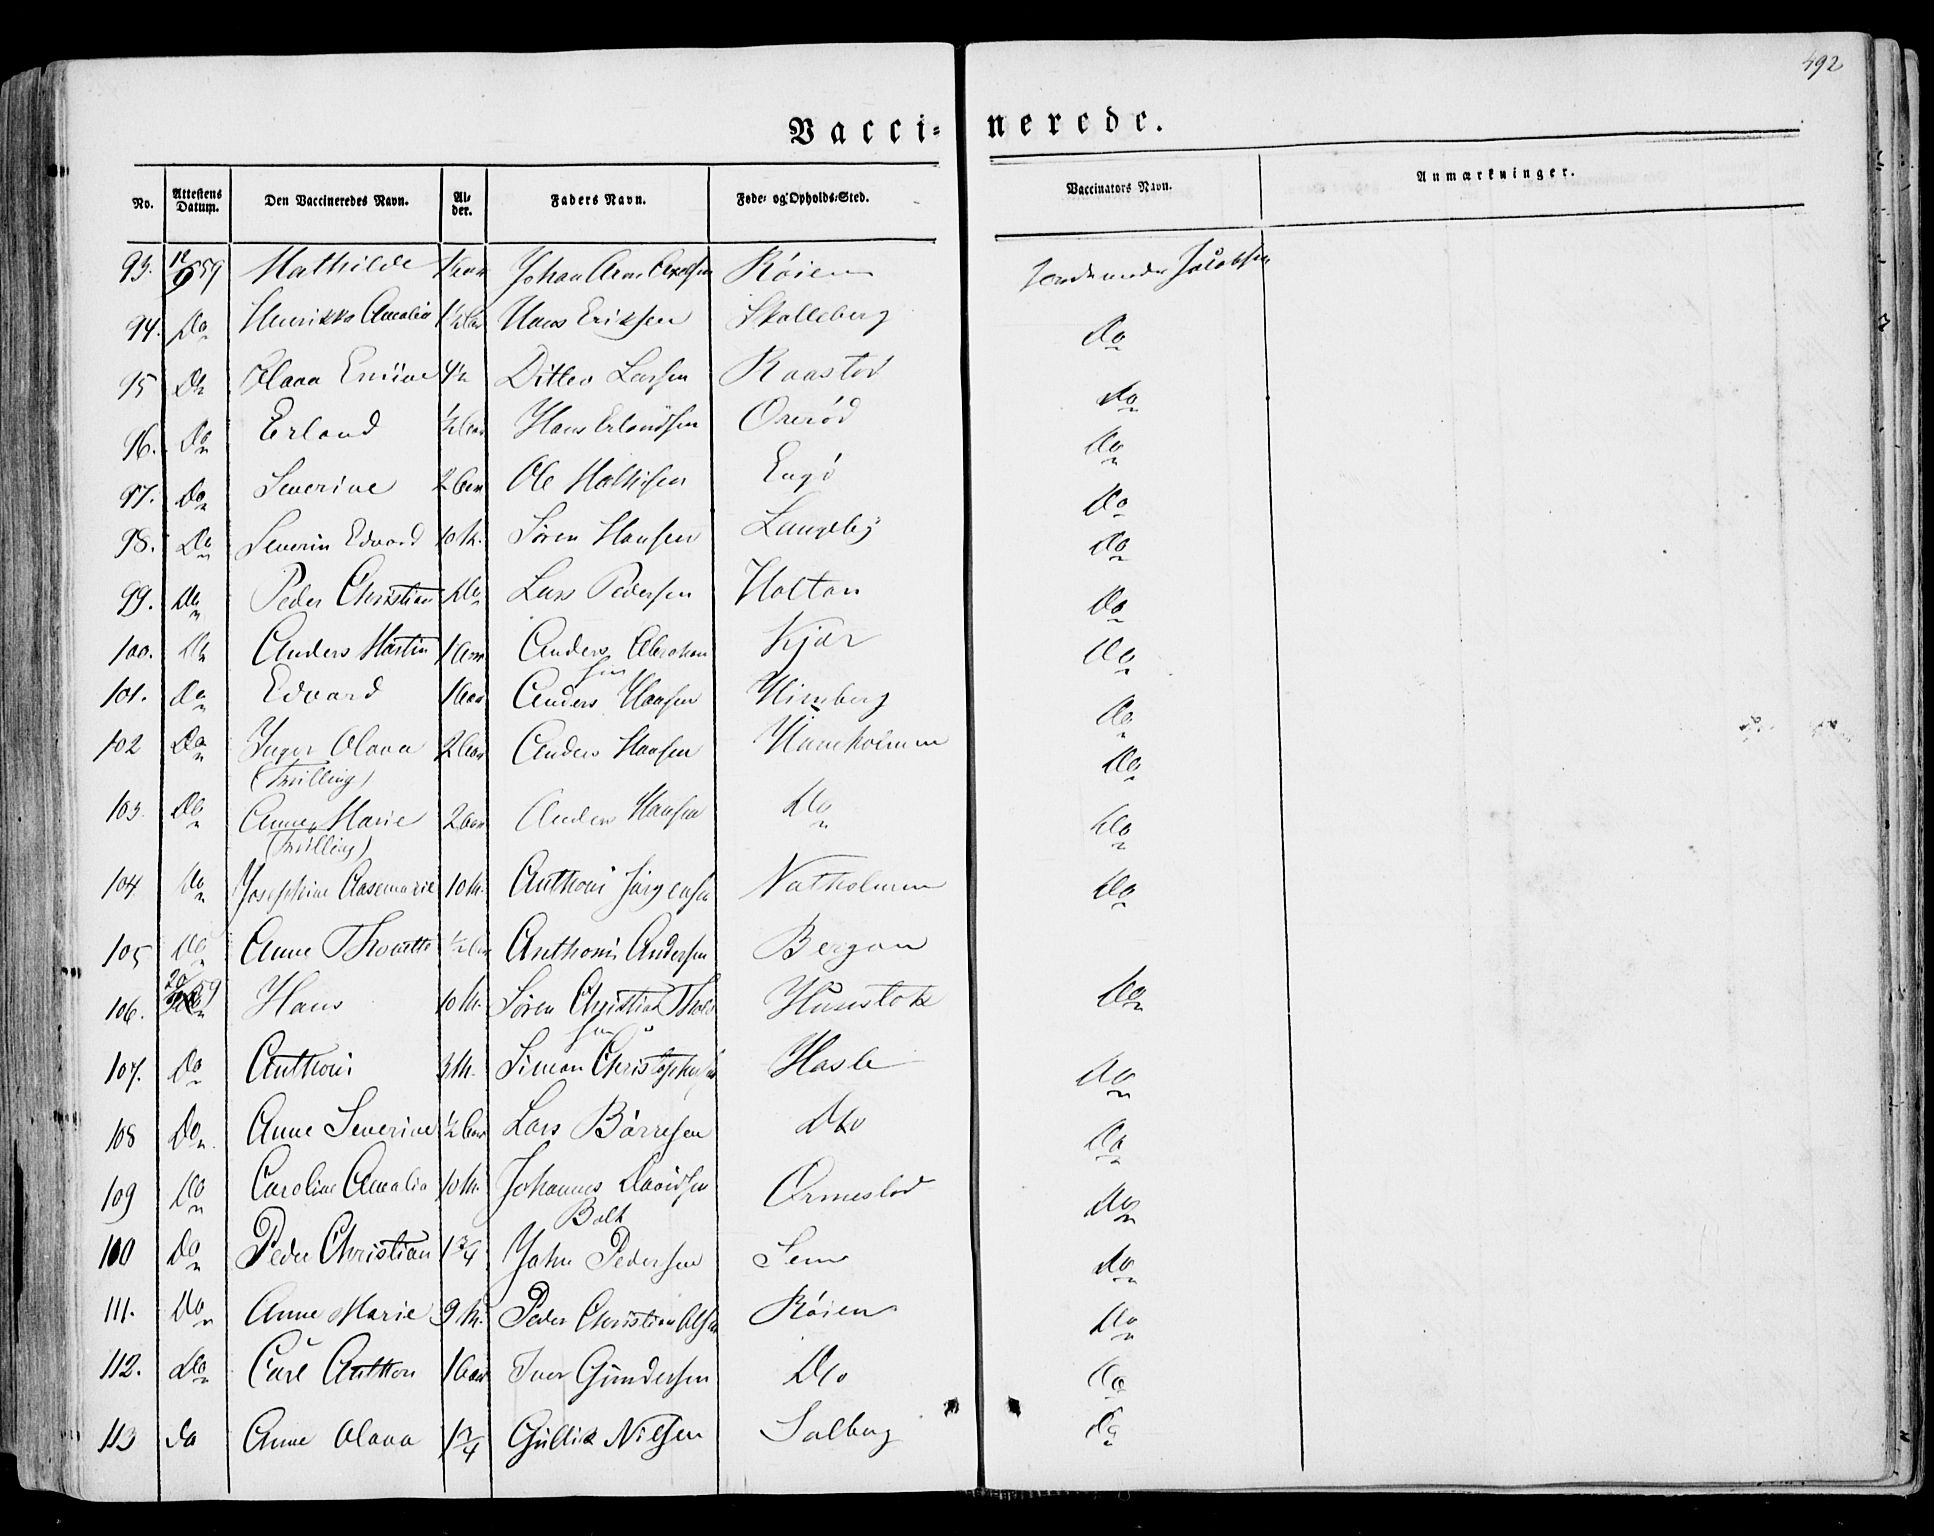 492
Vacci- nerede.
No. Attestens Datum. Den Vaccineredes Navn. Al- der. Faders Navn. Føde- og Opholds-Sted. Vaccinators Navn. Anmærkninger.
93. 12/9 59 Mathilde Johan Arne Røien Jordemoder Jacobsen
94. Do Henrikka Amalia Hans Eriksen Skalleberg Do
95 Do Olava Emilie Ditlev Larsen Raastad Do
96. Do Erland Hans Erlandsen Orerød Do
97. Do Severine 2 Aar Ole Mathisen Engø Do
98. Do Severin Edvard 10 M. Søren Hansen Langeby Do
99. Do Peder Christian Do Lars Pedersen Holtan Do
100. Do Anders Martin 1 Aar Anders Abraham
sen Kjær Do
101. Do Edvard 1 Aar Anders Hansen Himberg Do
102 Do Inger Olava 2 Aar Anders Hansen Do
(Tvilling)
103. Do Anne Marie 2 Aar Anders Hansen Do Do
(Tvilling)
104 Do Josephine Aasemarie 10 M. Anthoni Jørgensen Natholmen Do
105 Do Anne ½ Aar Anthoni Andersen Bergan
106. Hans 10 M. Søren Christian Thor
sen Hunstok Do
107. Do Anthoni M. Simon Christophersen Hasle Do
108 Do Anne Severine ½ Aar Lars Børresen Do Do
109 Do Caroline Amalia 10 M. Johannes Davidsen Ormestad Do
Bolt
100 Do Peder Christian 1¾ John Pedersen Sem Do
111. Do Anne Marie 9 M. Peder Christian Olsen Røien Do
112. Do Carl Anthon 1 Aar Iver Gundersen Do Do
113 Do Anne Olava Gullik Nilsen Solberg Do